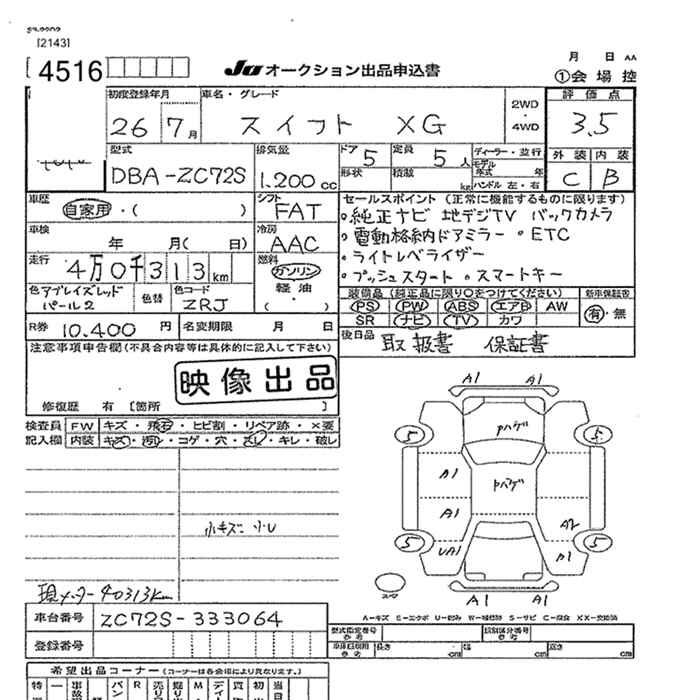 [2143]
4516
JU オークション出品申込書
月 日 AA
①会場控
初度登録年月 車名・グレード
26 7月 スイフト XG
2WD
・
4WD
評価点
3.5
外装 内装
C B
型式 排気量
DBA-ZC72S 1.200cc
ドア 5 定員 5人
形状 積載 kg
ディーラー・並行
モデル年式 年
ハンドル 左・右
車歴
自家用・( )
シフト
FAT
車検
年 月( 日)
冷房
AAC
走行
4万0千313km
燃料
ガソリン
軽油
( )
色 アブレイズレッドパール2
色替
色コード
ZRJ
セールスポイント(正常に機能するものに限ります)
・純正ナビ 地デジTV バックカメラ
・電動格納ドアミラー ・ETC
・ライトレベライザー
・プッシュスタート ・スマートキー
装備品(純正品に限り○をつけてください)
PS PW ABS エアB AW
SR ナビ TV カワ
新車保証書
有・無
R券 10.400円 名変期限 月 日
後日品 取扱書 保証書
注意事項申告欄(不具合内容等は具体的に記入して下さい)
映像出品
修復歴 有 [箇所
検査員記入欄
FW キズ・飛石・ヒビ割・リペア跡・×要
内装 キズ・汚れ・コゲ・穴・スレ・キレ・破レ
小キズ 小U
現メーター40313km
A1 A1
5 5
Pハゲ
A1 Pハゲ
A1 A2
UA1 A1
5 5
A1 A1
スペア
車台番号 ZC72S-333064
登録番号
型式指定番号
類別区分番号
長さ cm 幅 cm 高さ cm
希望出品コーナー(コーナーは各会場により異なります。)